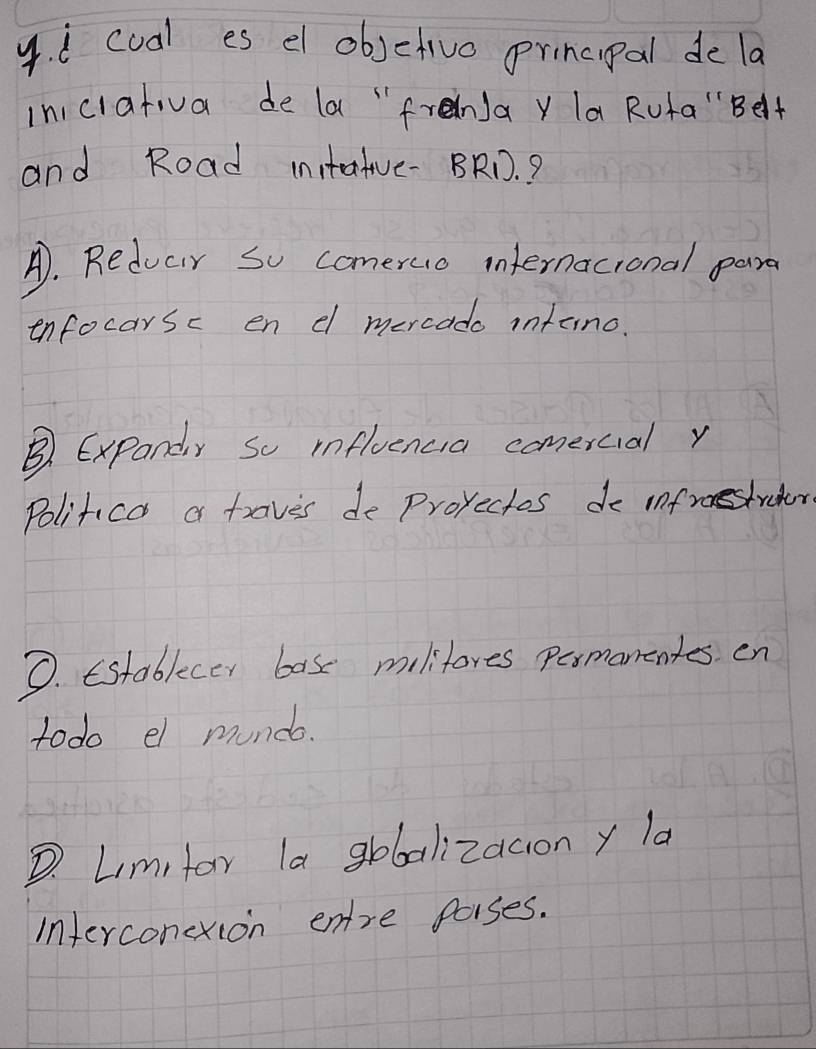 4. ¿ cual es el objetivo principal de la
iniciativa de la "franja y la Ruta" Belt
and Road initative- BRI). ?
A). Reducir su comercio internacional para
enfocarse en el mercado interno.
B). Expandir su influencia comercial y
Politica a través de Proyectos de infraestructur
D. Establecer base militares Permanentes. en
todo el mundo.
D. Limitar la globalizacion y la
interconexión entre países.